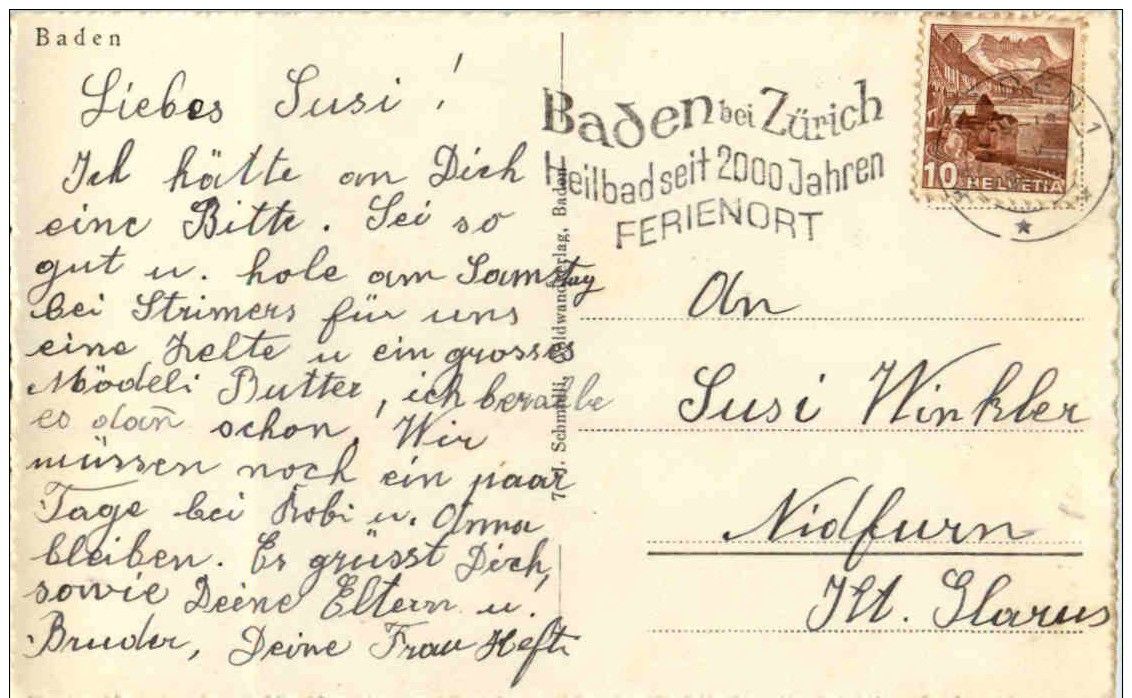 Baden
Liebes Susi!
Ich hätte an Dich
eine Bitte. Sei so
gut u. hole am Samstag
bei Strimers für uns
eine Zelte u ein grosses
Mödeli Butter, ich berappe
es dan̄ schon. Wir
müssen noch ein paar
Tage bei Robi u. Anna
bleiben. Es grüsst Dich,
sowie Deine Eltern u.
Bruder, Deine Frau Hefti
J. Schmidli, Goldwandverlag, Baden
Baden bei Zürich
Heilbad seit 2000 Jahren
FERIENORT
10 HELVETIA
An
Susi Winkler
Nidfurn
Kt. Glarus